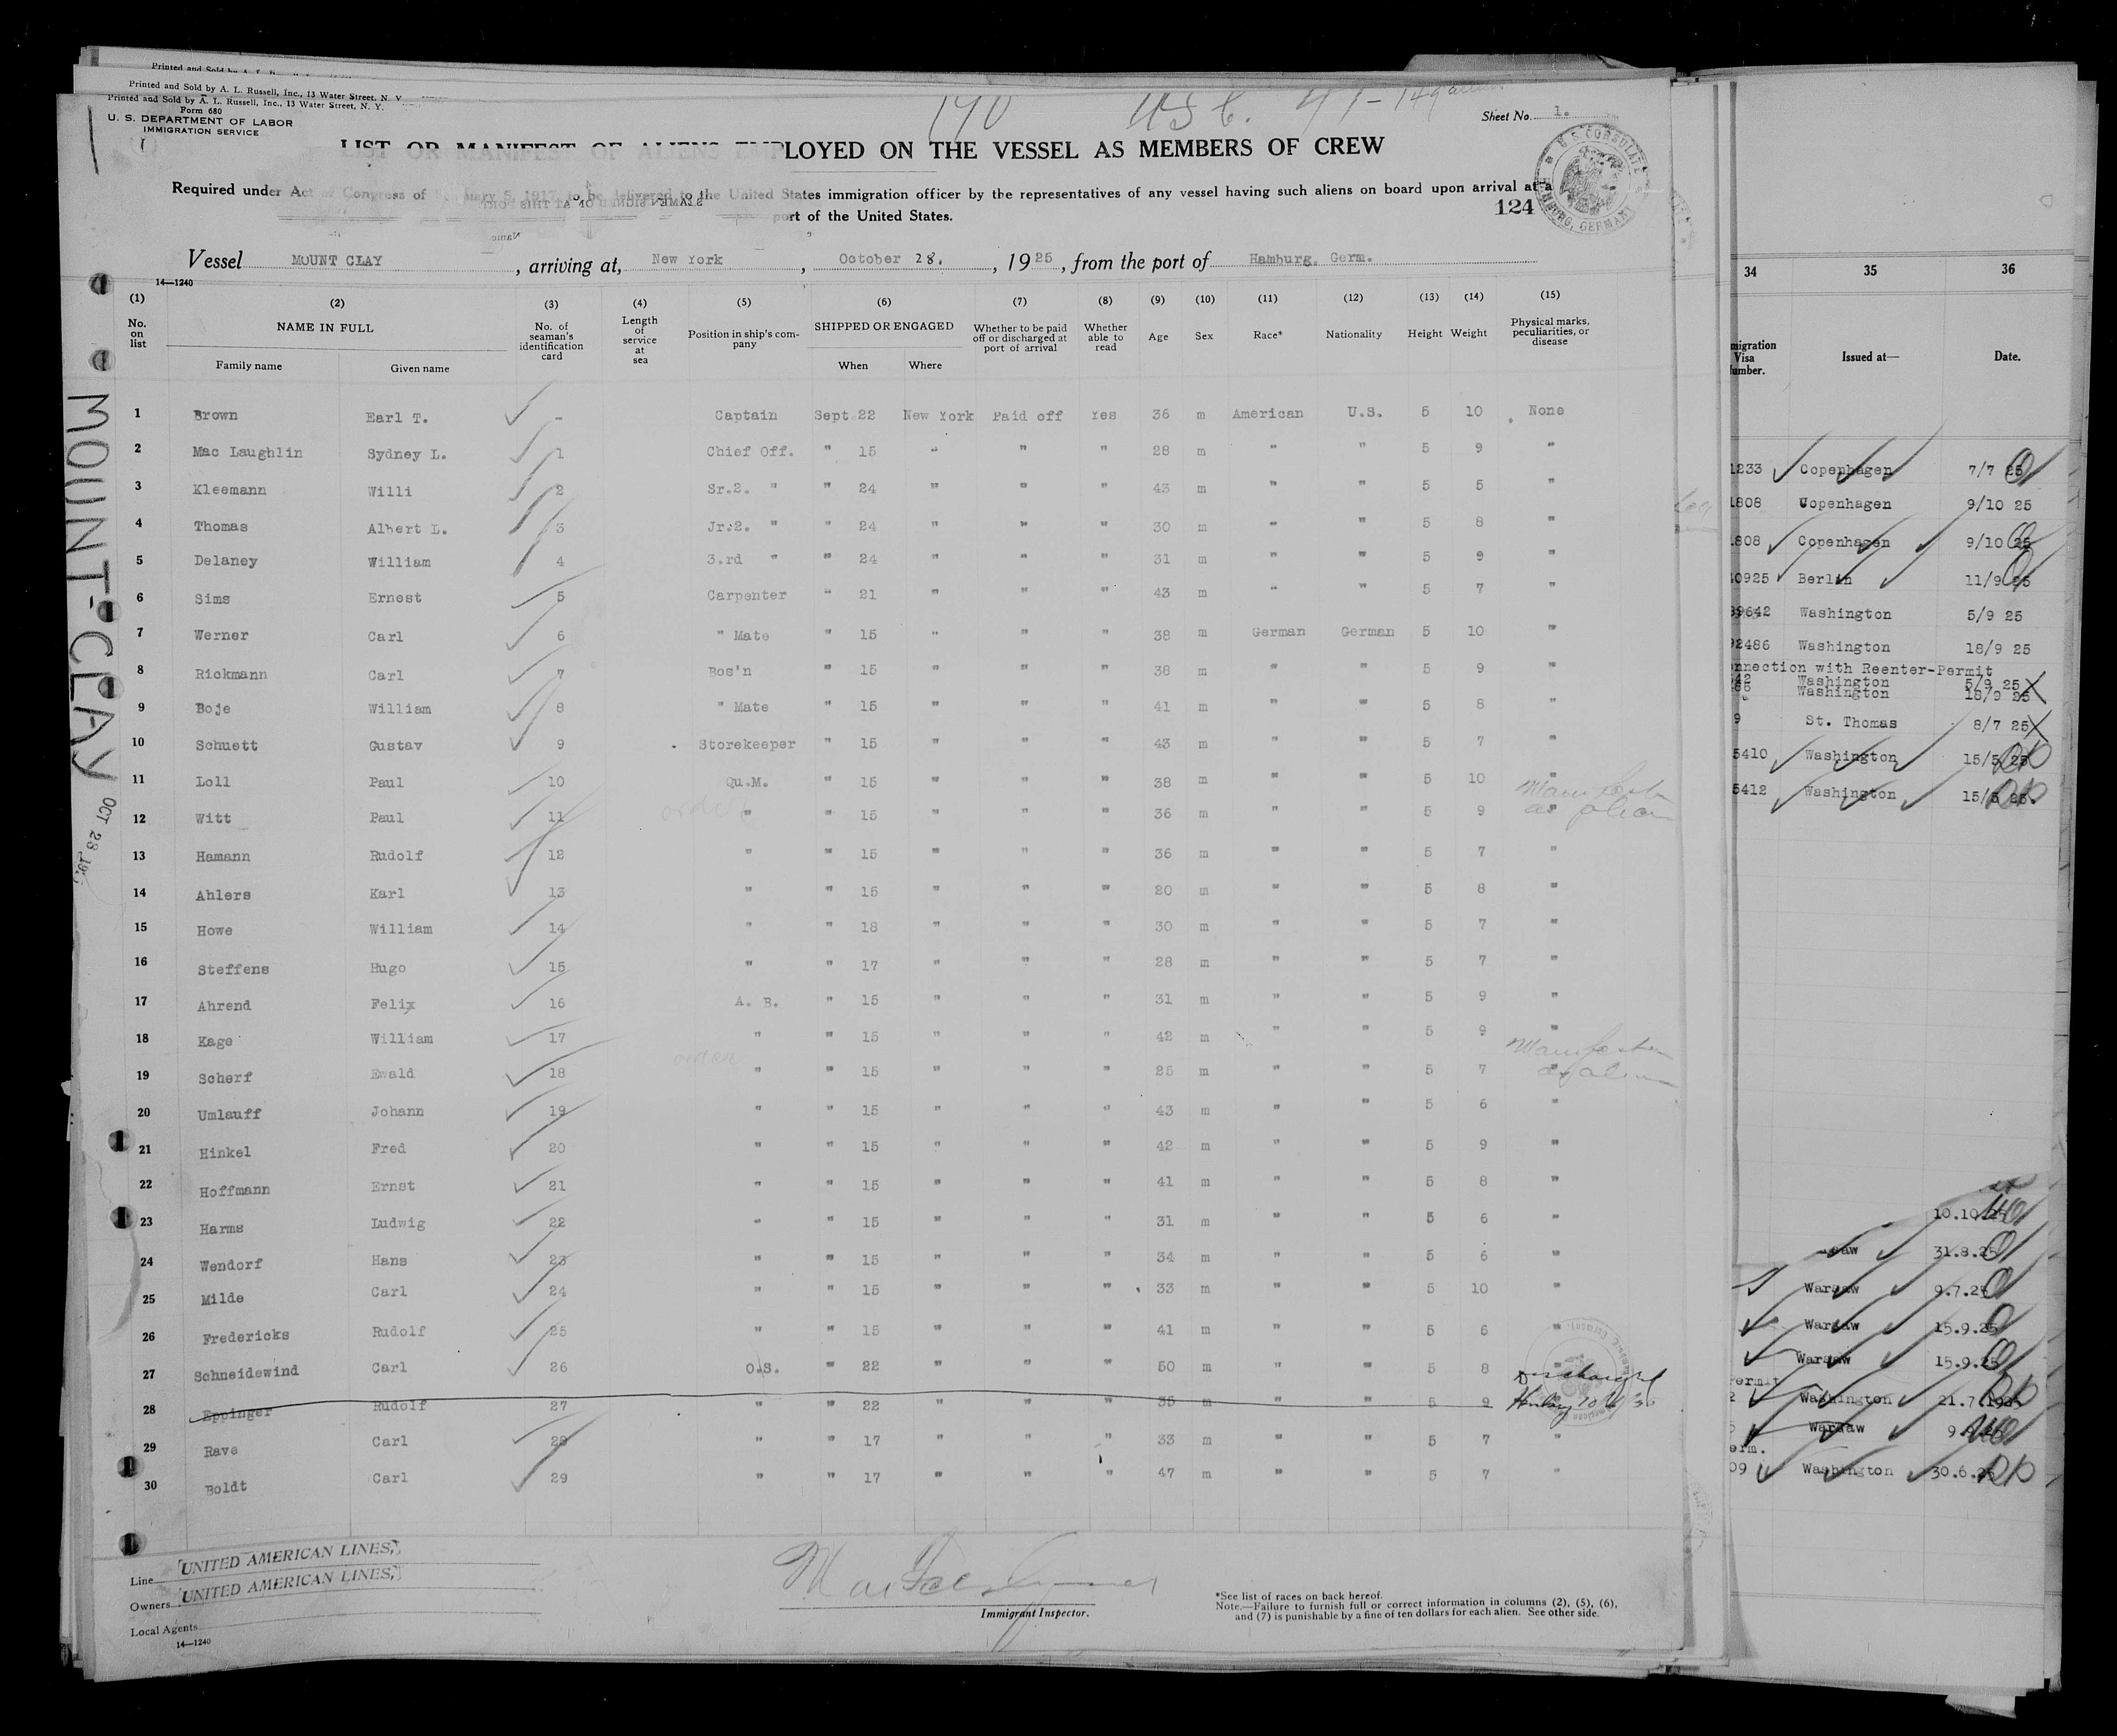 Printed and Sold by A. L. Russell, Inc., 13 Water Street, N. Y
Printed and Sold by A. L. Russell, Inc., 13 Water Street, N. Y.
Form 680
U. S. DEPARTMENT OF LABOR
IMMIGRATION SERVICE
190 Sheet No. 1.
LIST OR MANIFEST OF ALIENS EMPLOYED ON THE VESSEL AS MEMBERS OF CREW
Required under Act of Congress of 5, 1917, to be delivered to the United States immigration officer by the representatives of any vessel having such aliens on board upon arrival at a
port of the United States.
124
U. S. CONSULATE HAMBURG, GERMANY
Vessel MOUNT CLAY, arriving at, New York, October 28., 1925, from the port of Hamburg. Germ.
14—1240
(1) (2) (3) (4) (5) (6) (7) (8) (9) (10) (11) (12) (13) (14) (15)
No. on list NAME IN FULL Family name Given name No. of seaman's identification card Length of service at sea Position in ship's company SHIPPED OR ENGAGED When Where Whether to be paid off or discharged at port of arrival Whether able to read Age Sex Race* Nationality Height Weight Physical marks, peculiarities, or disease
1 Brown Earl T. - Captain Sept 22 New York Paid off Yes 36 m American U.S. 5 10 None
2 Mac Laughlin Sydney L. 1 Chief Off. " 15 " " " 28 m " " 5 9 "
3 Kleemann Willi 2 Sr.2. " " 24 " " " 43 m " " 5 5 "
4 Thomas Albert L. 3 Jr.2. " " 24 " " " 30 m " " 5 8 "
5 Delaney William 4 3.rd " " 24 " " " 31 m " " 5 9 "
6 Sims Ernest 5 Carpenter " 21 " " " 43 m " " 5 7 "
7 Werner Carl 6 " Mate " 15 " " " 38 m German German 5 10 "
8 Rickmann Carl 7 Bos'n " 15 " " " 38 m " " 5 9 "
9 Boje William 8 " Mate " 15 " " " 41 m " " 5 8 "
10 Schuett Gustav 9 Storekeeper " 15 " " " 43 m " " 5 7 "
11 Loll Paul 10 Qu.M. " 15 " " " 38 m " " 5 10 "
12 Witt Paul 11 " " 15 " " " 36 m " " 5 9 as alien
13 Hamann Rudolf 12 " " 15 " " " 36 m " " 5 7 "
14 Ahlers Karl 13 " " 15 " " " 20 m " " 5 8 "
15 Howe William 14 " " 18 " " " 30 m " " 5 7 "
16 Steffens Hugo 15 " " 17 " " " 28 m " " 5 7 "
17 Ahrend Felix 16 A. B. " 15 " " " 31 m " " 5 9 "
18 Kage William 17 " " 15 " " " 42 m " " 5 9 "
19 Scherf Ewald 18 " " 15 " " " 25 m " " 5 7 as alien
20 Umlauff Johann 19 " " 15 " " " 43 m " " 5 6 "
21 Hinkel Fred 20 " " 15 " " " 42 m " " 5 9 "
22 Hoffmann Ernst 21 " " 15 " " " 41 m " " 5 8 "
23 Harms Ludwig 22 " " 15 " " " 31 m " " 5 6 "
24 Wendorf Hans 23 " " 15 " " " 34 m " " 5 6 "
25 Milde Carl 24 " " 15 " " " 33 m " " 5 10 "
26 Fredericks Rudolf 25 " " 15 " " " 41 m " " 5 6 "
27 Schneidewind Carl 26 O.S. " 22 " " " 50 m " " 5 8 Discharged
28 Eppinger Rudolf 27 " " 22 " " " 35 m " " 5 9
29 Rave Carl 28 " " 17 " " " 33 m " " 5 7 "
30 Boldt Carl 29 " " 17 " " " 47 m " " 5 7 "
MOUNT-CLAY
OCT 28
Line UNITED AMERICAN LINES,
Owners UNITED AMERICAN LINES,
Local Agents
14—1240
Immigrant Inspector.
*See list of races on back hereof.
Note.—Failure to furnish full or correct information in columns (2), (5), (6),
and (7) is punishable by a fine of ten dollars for each alien. See other side.
34 35 36
migration Visa umber. Issued at— Date.
1233 Copenhagen 7/7 25
1808 Copenhagen 9/10 25
1808 Copenhagen 9/10 25
0925 Berlin 11/9 25
39642 Washington 5/9 25
92486 Washington 18/9 25
nnection with Reenter-Permit
42 Washington 5/9 25
86 Washington 18/9 25
9 St. Thomas 8/7 25
5410 Washington 15/5 25
5412 Washington 15/5 25.
10.10.25
saw 31.8.25
Warsaw 9.7.25
Warsaw 15.9.25
Warsaw 15.9.25
ermit
2 Washington 21.7.1925
Warsaw
erm.
09 Washington 30.6.25